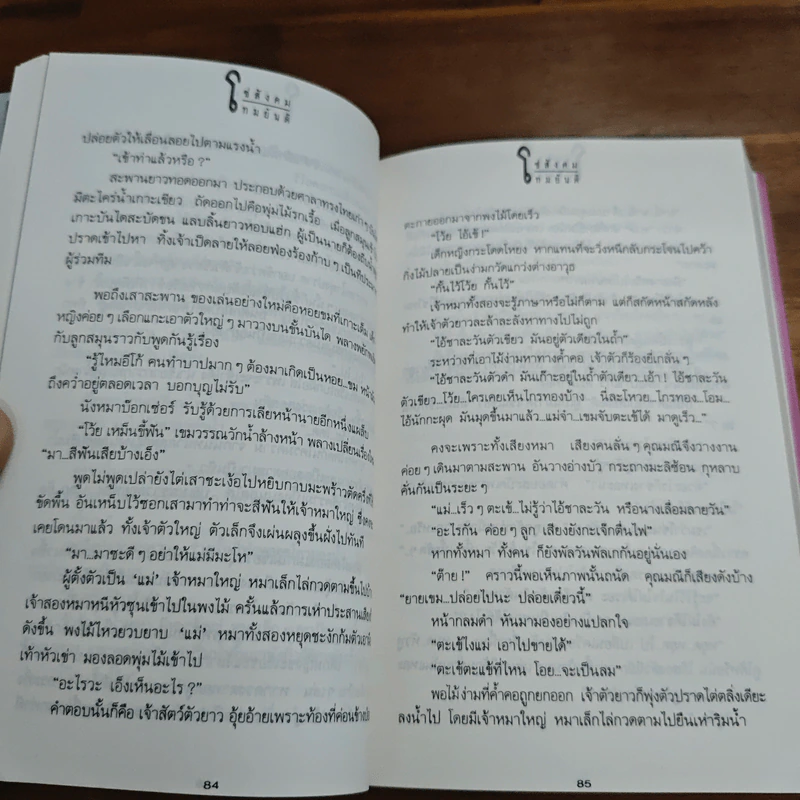 โซ่สังคม
ทมยันตี
ปล่อยตัวให้เลื่อนลอยไปตามแรงน้ำ
“เข้าทำแล้วหรือ ?”
สะพานยาวทอดออกมา ประกอบด้วยศาลาทรงไทยเก่า ๆ
มีตะไคร่น้ำเกาะเขียว ถัดออกไปคือพุ่มไม้รกเรื้อ เมื่อลูกสมุน
เกาะบันไดสะบัดขน แลบลิ้นยาวหอบแฮ่ก ผู้เป็นนายก็ต้อง
ปราดเข้าไปหา ทิ้งเจ้าเป็ดลายให้ลอยฟ่องร้องก้าบ ๆ เป็นที่
ผู้ร่วมทีม
พอถึงเสาสะพาน ของเล่นอย่างใหม่คือหอยขมที่เกาะเต็ม
หญิงค่อย ๆ เลือกแกะเอาตัวใหญ่ ๆ มาวางบนขั้นบันได พลาง
กับลูกสมุนราวกับพูดกันรู้เรื่อง
“รู้ไหมอีโก้ คนทำบาปมาก ๆ ต้องมาเกิดเป็นหอย...ขม
ถึงคว่ำอยู่ตลอดเวลา บอกบุญไม่รับ”
นังหมาบ๊อกเซ่อร์ รับรู้ด้วยการเลียหน้านายอีกหนึ่งแผล็บ
“โว้ย เหม็นขี้ฟัน” เขมวรรณวักน้ำล้างหน้า พลางเปลี่ยนเรื่อง
“มา...สีฟันเสียบ้างเอ็ง”
พูดไม่พูดเปล่ายังไต่เสาชะเง้อไปหยิบกาบมะพร้าวตัดครึ่ง
ขัดพื้น อันเหน็บไว้ซอกเสามาทำท่าจะสีฟันให้เจ้าหมาใหญ่
เคยโดนมาแล้ว ทั้งเจ้าตัวใหญ่ ตัวเล็กจึงเผ่นผลุงขึ้นฝั่งไปทันที
“มา...มาซะดี ๆ อย่าให้แม่มีมะโห”
ผู้ตั้งตัวเป็น ‘แม่’ เจ้าหมาใหญ่ หมาเล็กไล่กวดตามขึ้นไป
เจ้าสองหมาหนีหัวซุนเข้าไปในพงไม้ ครั้นแล้วการเห่าประสานเสียง
ดังขึ้น พงไม้ไหวยวบยาบ ‘แม่’ หมาทั้งสองหยุดชะงักก้มตัวเอา
เท้าหัวเข่า มองลอดพุ่มไม้เข้าไป
“อะไรวะ เอ็งเห็นอะไร ?”
คำตอบนั้นก็คือ เจ้าสัตว์ตัวยาว อุ้ยอ้ายเพราะท้องที่ค่อนข้าง
84
โซ่สังคม
ทมยันตี
ตะกายออกมาจากพงไม้โดยเร็ว
“โว้ย ไอ้เข้ !”
เด็กหญิงกระโดดโหยง หากแทนที่จะวิ่งหนีกลับกระโจนไปคว้า
กิ่งไม้ปลายเป็นง่ามกวัดแกว่งต่างอาวุธ
“กั้นไว้โว้ย กั้นไว้”
เจ้าหมาทั้งสองจะรู้ภาษาหรือไม่ก็ตาม แต่ก็สกัดหน้าสกัดหลัง
ทำให้เจ้าตัวยาวละล้าละลังหาทางไปไม่ถูก
“ไอ้ชาละวันตัวเขียว มันอยู่ตัวเดียวในถ้ำ”
ระหว่างที่เอาไม้ง่ามหาทางค้ำคอ เจ้าตัวก็ร้องยี่เกลั่น ๆ
“ไอ้ชาละวันตัวดำ มันเก๊าะอยู่ในถ้ำตัวเดียว...เอ้า ! ไอ้ชาละวัน
ตัวเขียว...โว้ย...ใครเคยเห็นไกรทองบ้าง นี่ละโหวย...ไกรทอง...โอม...
ไอ้นักกะผุด มันมุดขึ้นมาแล้ว...แม่จ๋า...เขมจับตะเข้ได้ มาดูเร็ว...”
คงจะเพราะทั้งเสียงหมา เสียงคนลั่น ๆ คุณมณีจึงวางงาน
ค่อย ๆ เดินมาตามสะพาน อันวางอ่างบัว กระถางมะลิซ้อน กุหลาบ
คั่นกันเป็นระยะ ๆ
“แม่...เร็ว ๆ ตะเข้...ไม่รู้ว่าไอ้ชาละวัน หรือนางเลื่อมลายวัน”
“อะไรกัน ค่อย ๆ ลูก เสียงยังกะเจ๊กตื่นไฟ”
หากทั้งหมา ทั้งคน ก็ยังพัลวันพัลเกกันอยู่นั่นเอง
“ต๊าย !” คราวนี้พอเห็นภาพนั้นถนัด คุณมณีก็เสียงดังบ้าง
“ยายเขม...ปล่อยไปนะ ปล่อยเดี๋ยวนี้”
หน้ากลมดำ หันมามองอย่างแปลกใจ
“ตะเข้ไงแม่ เอาไปขายได้”
“ตะเข้ตะแข้ที่ไหน โอย...จะเป็นลม”
พอไม้ง่ามที่ค้ำคอถูกยกออก เจ้าตัวยาวก็พุ่งตัวปราดไต่ตลิ่งเดียะ
ลงน้ำไป โดยมีเจ้าหมาใหญ่ หมาเล็กไล่กวดตามไปยืนเห่าริมน้ำ
85